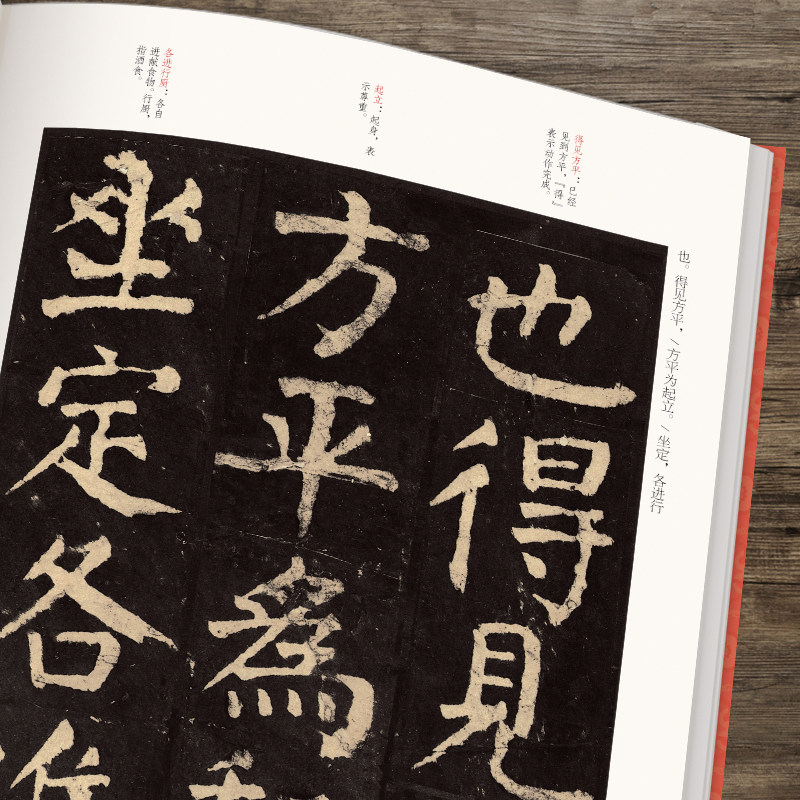 得见方平：已经
见到方平，『得』
表示动作完成。
起立：起身，表
示尊重。
各进行厨：各自
进献食物。行厨，
指酒食。
也。得见方平，\方平为起立。\坐定，各进行
也得見
方平為
坐定各進